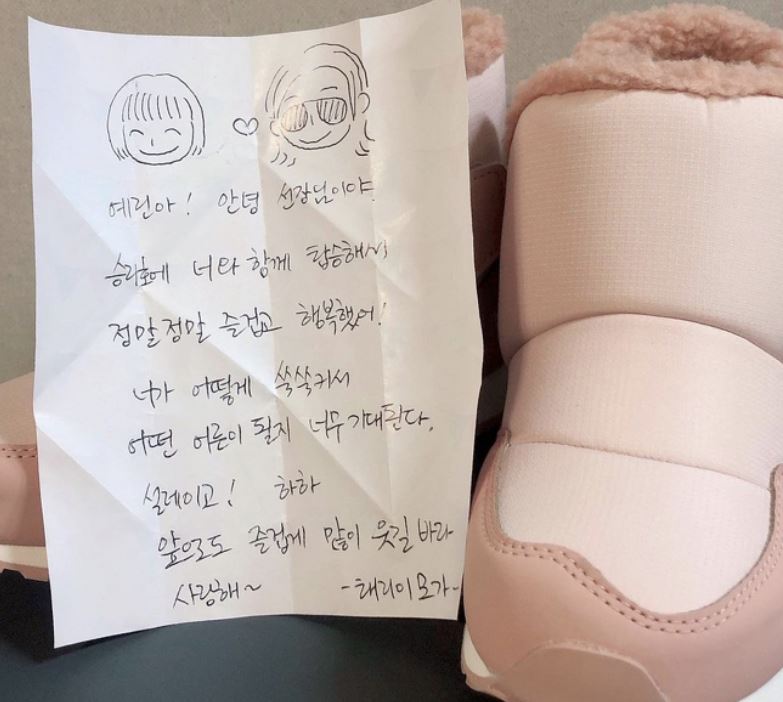 예린아! 안녕 선장님이야.
승리호에 너와 함께 탑승해서
정말정말 즐겁고 행복했어!
너가 어떻게 쑥쑥커서
어떤 어른이 될지 너무 기대된다.
설레이고! 하하
앞으로도 즐겁게 많이 웃길 바라
사랑해~ -태리이모가-